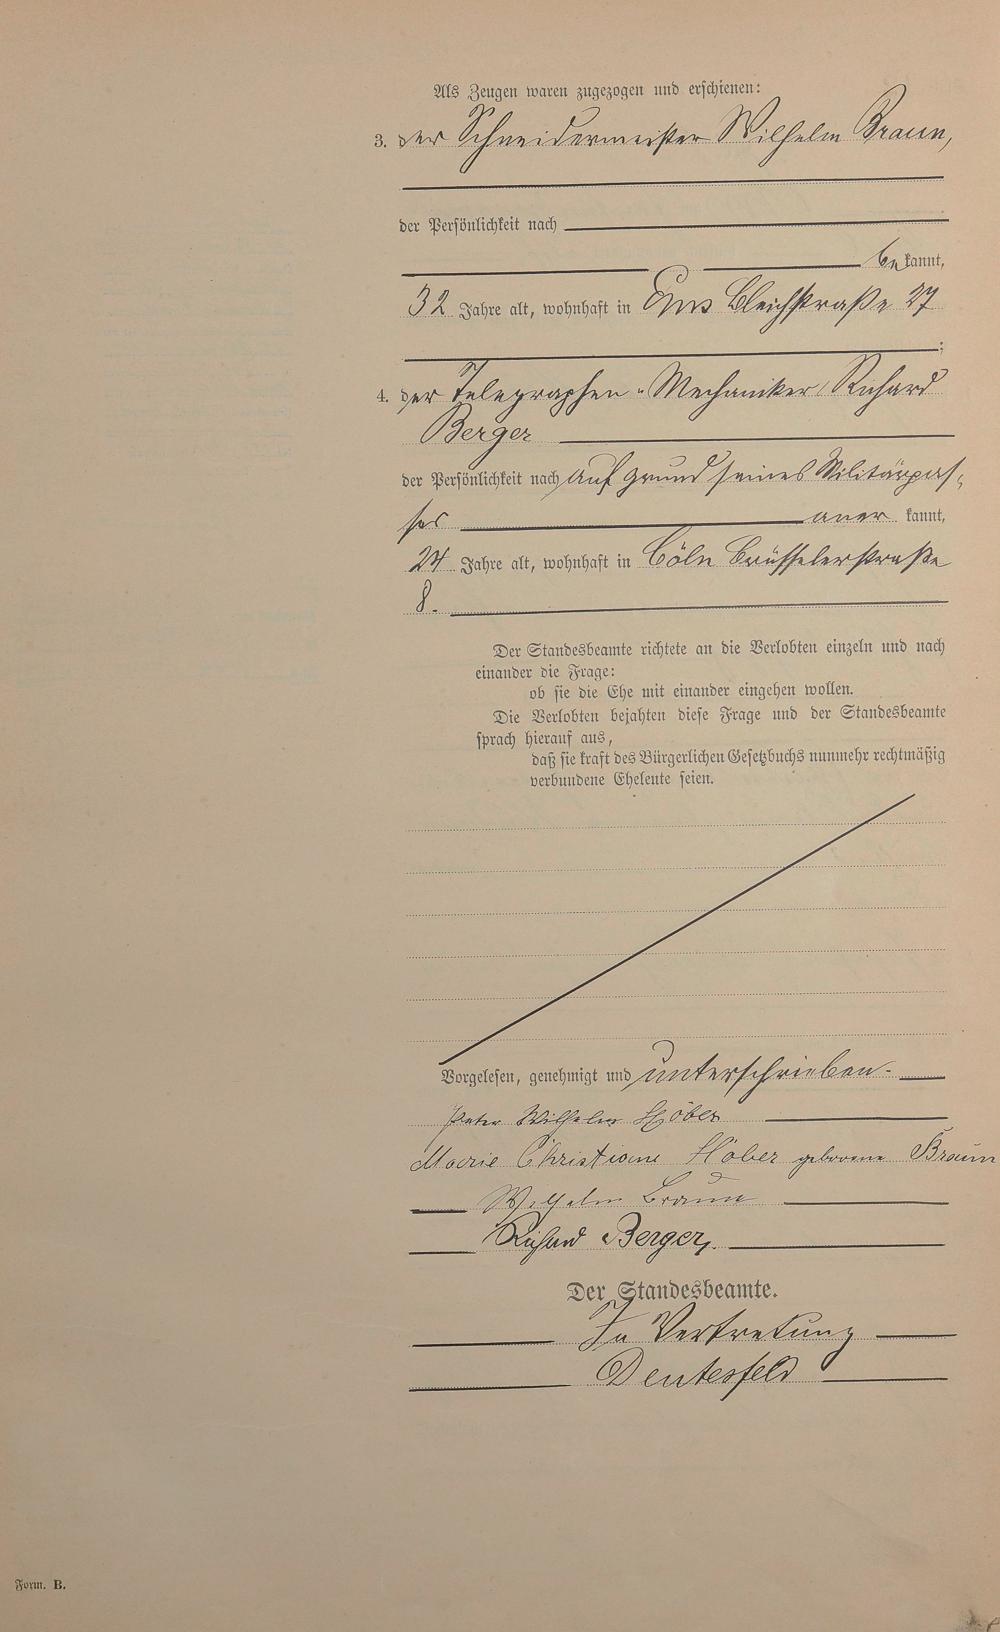 Als Zeugen waren zugezogen und erschienen:
3. der Schneidermeister Wilhelm Braun,
der Persönlichkeit nach
be kannt,
32 Jahre alt, wohnhaft in Ems Bleichstraße 27
;
4. der Telegraphen-Mechaniker Richard
Berger
der Persönlichkeit nach auf grund seines Militärpas-
ses aner kannt,
24 Jahre alt, wohnhaft in Cöln Brüsselerstraße
8.
Der Standesbeamte richtete an die Verlobten einzeln und nach
einander die Frage:
ob sie die Ehe mit einander eingehen wollen.
Die Verlobten bejahten diese Frage und der Standesbeamte
sprach hierauf aus,
daß sie kraft des Bürgerlichen Gesetzbuchs nunmehr rechtmäßig
verbundene Eheleute seien.
Vorgelesen, genehmigt und unterschrieben.
Peter Wilhelm Höber
Marie Christiane Höber geborene Braun
Wilhelm Braun
Richard Berger,
Der Standesbeamte.
In Vertretung
Form. B.